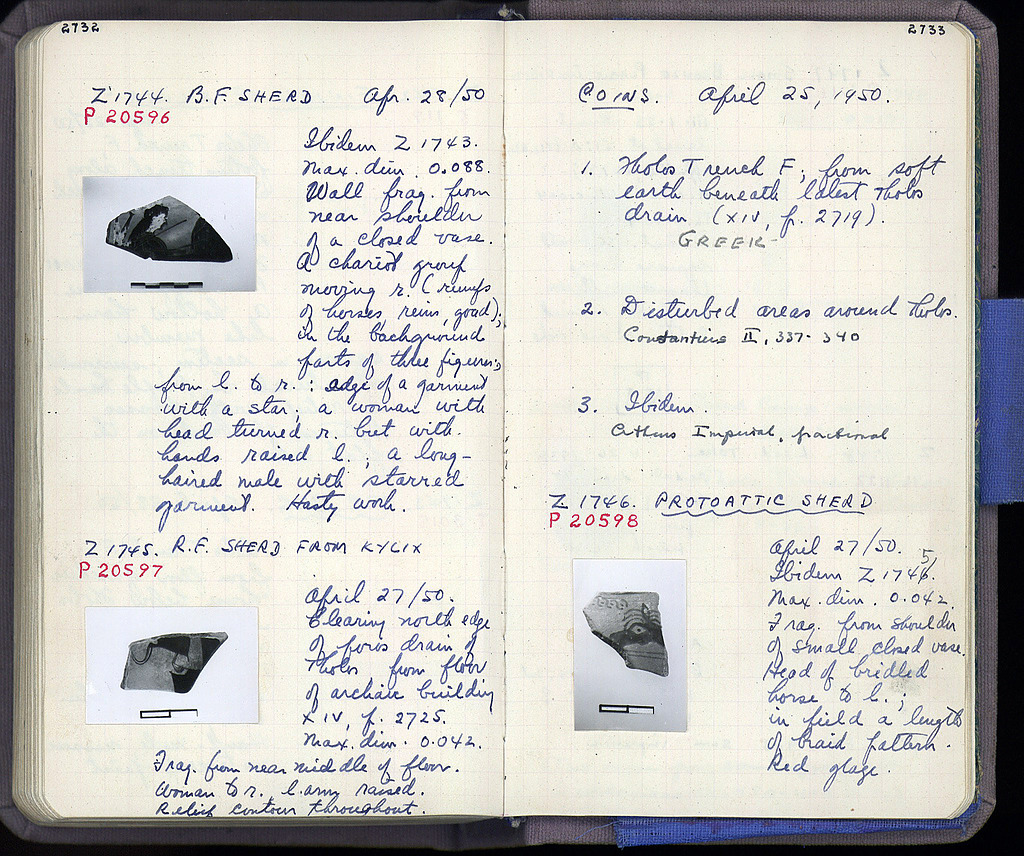 2732
Z 1744. B.F. SHERD Apr. 28/50
P 20596
Ibidem Z 1743.
Max. dim. 0.088.
Wall frag. from
near shoulder
of a closed vase.
A chariot group
moving r. (rumps
of horses, reins, goad);
in the background
parts of three figures;
from l. to r.: edge of a garment
with a star; a woman with
head turned r. but with
hands raised l.; a long-
haired male with starred
garment. Hasty work.
Z 1745. R.F. SHERD FROM KYLIX
P 20597
April 27/50.
Clearing north edge
of poros drain of
Tholos from floor
of archaic building
XIV, p. 2725.
Max. dim. 0.042.
Frag. from near middle of floor.
Woman to r., l. arm raised.
Relief contour throughout.
2733
COINS. April 25, 1950.
1. Tholos Trench F; from soft
earth beneath latest Tholos
drain (XIV, p. 2719).
GREEK-
2. Disturbed areas around Tholos.
Constantius II, 337-340
3. Ibidem.
Athens Imperial, fractional
Z 1746. PROTOATTIC SHERD
P 20598
April 27/50.
5/
Ibidem Z 1746.
Max. dim. 0.042.
Frag. from shoulder
of small closed vase.
Head of bridled
horse to l.;
in field a length
of braid pattern.
Red glaze.